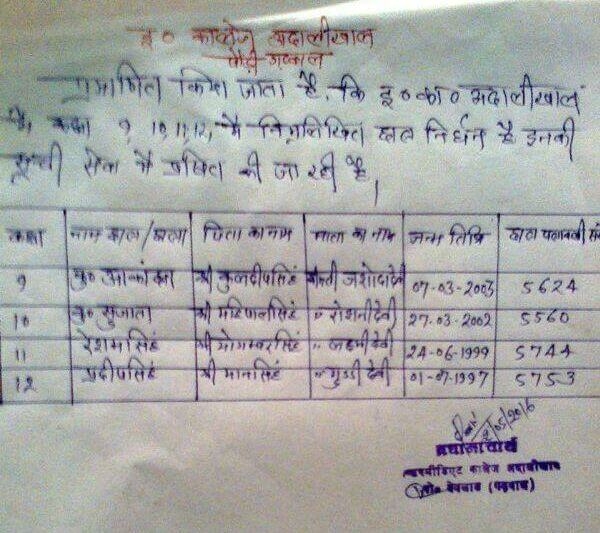 इ० कालेज अदालीखाल
पौड़ी गढ़वाल
प्रमाणित किया जाता है, कि इ०का० अदालीखाल
के, कक्षा 9, 10, 11, 12, में निम्नलिखित छात्र निर्धन है इनकी
सूची सेवा में प्रेषित की जा रही है।
कक्षा नाम छात्र/छात्रा पिता का नाम माता का नाम जन्म तिथि छात्र पंजावली सं
9 कु० आकांक्षा श्री कुलदीपसिंह श्रीमती जशोदादेवी 07-03-2003 5624
10 कु० सुजाता श्री महिपालसिंह " रोशनीदेवी 27-03-2002 5560
11 रेशमसिंह श्री योगम्बरसिंह " देवी 24-06-1999 5744
12 प्रदीपसिंह श्री मानसिंह " गुड्डी देवी 01-07-1997 5753
/05/2016
प्रधानाचार्य
इण्टरमीडिएट कालेज अदालीखाल
पो० (गढ़वाल)